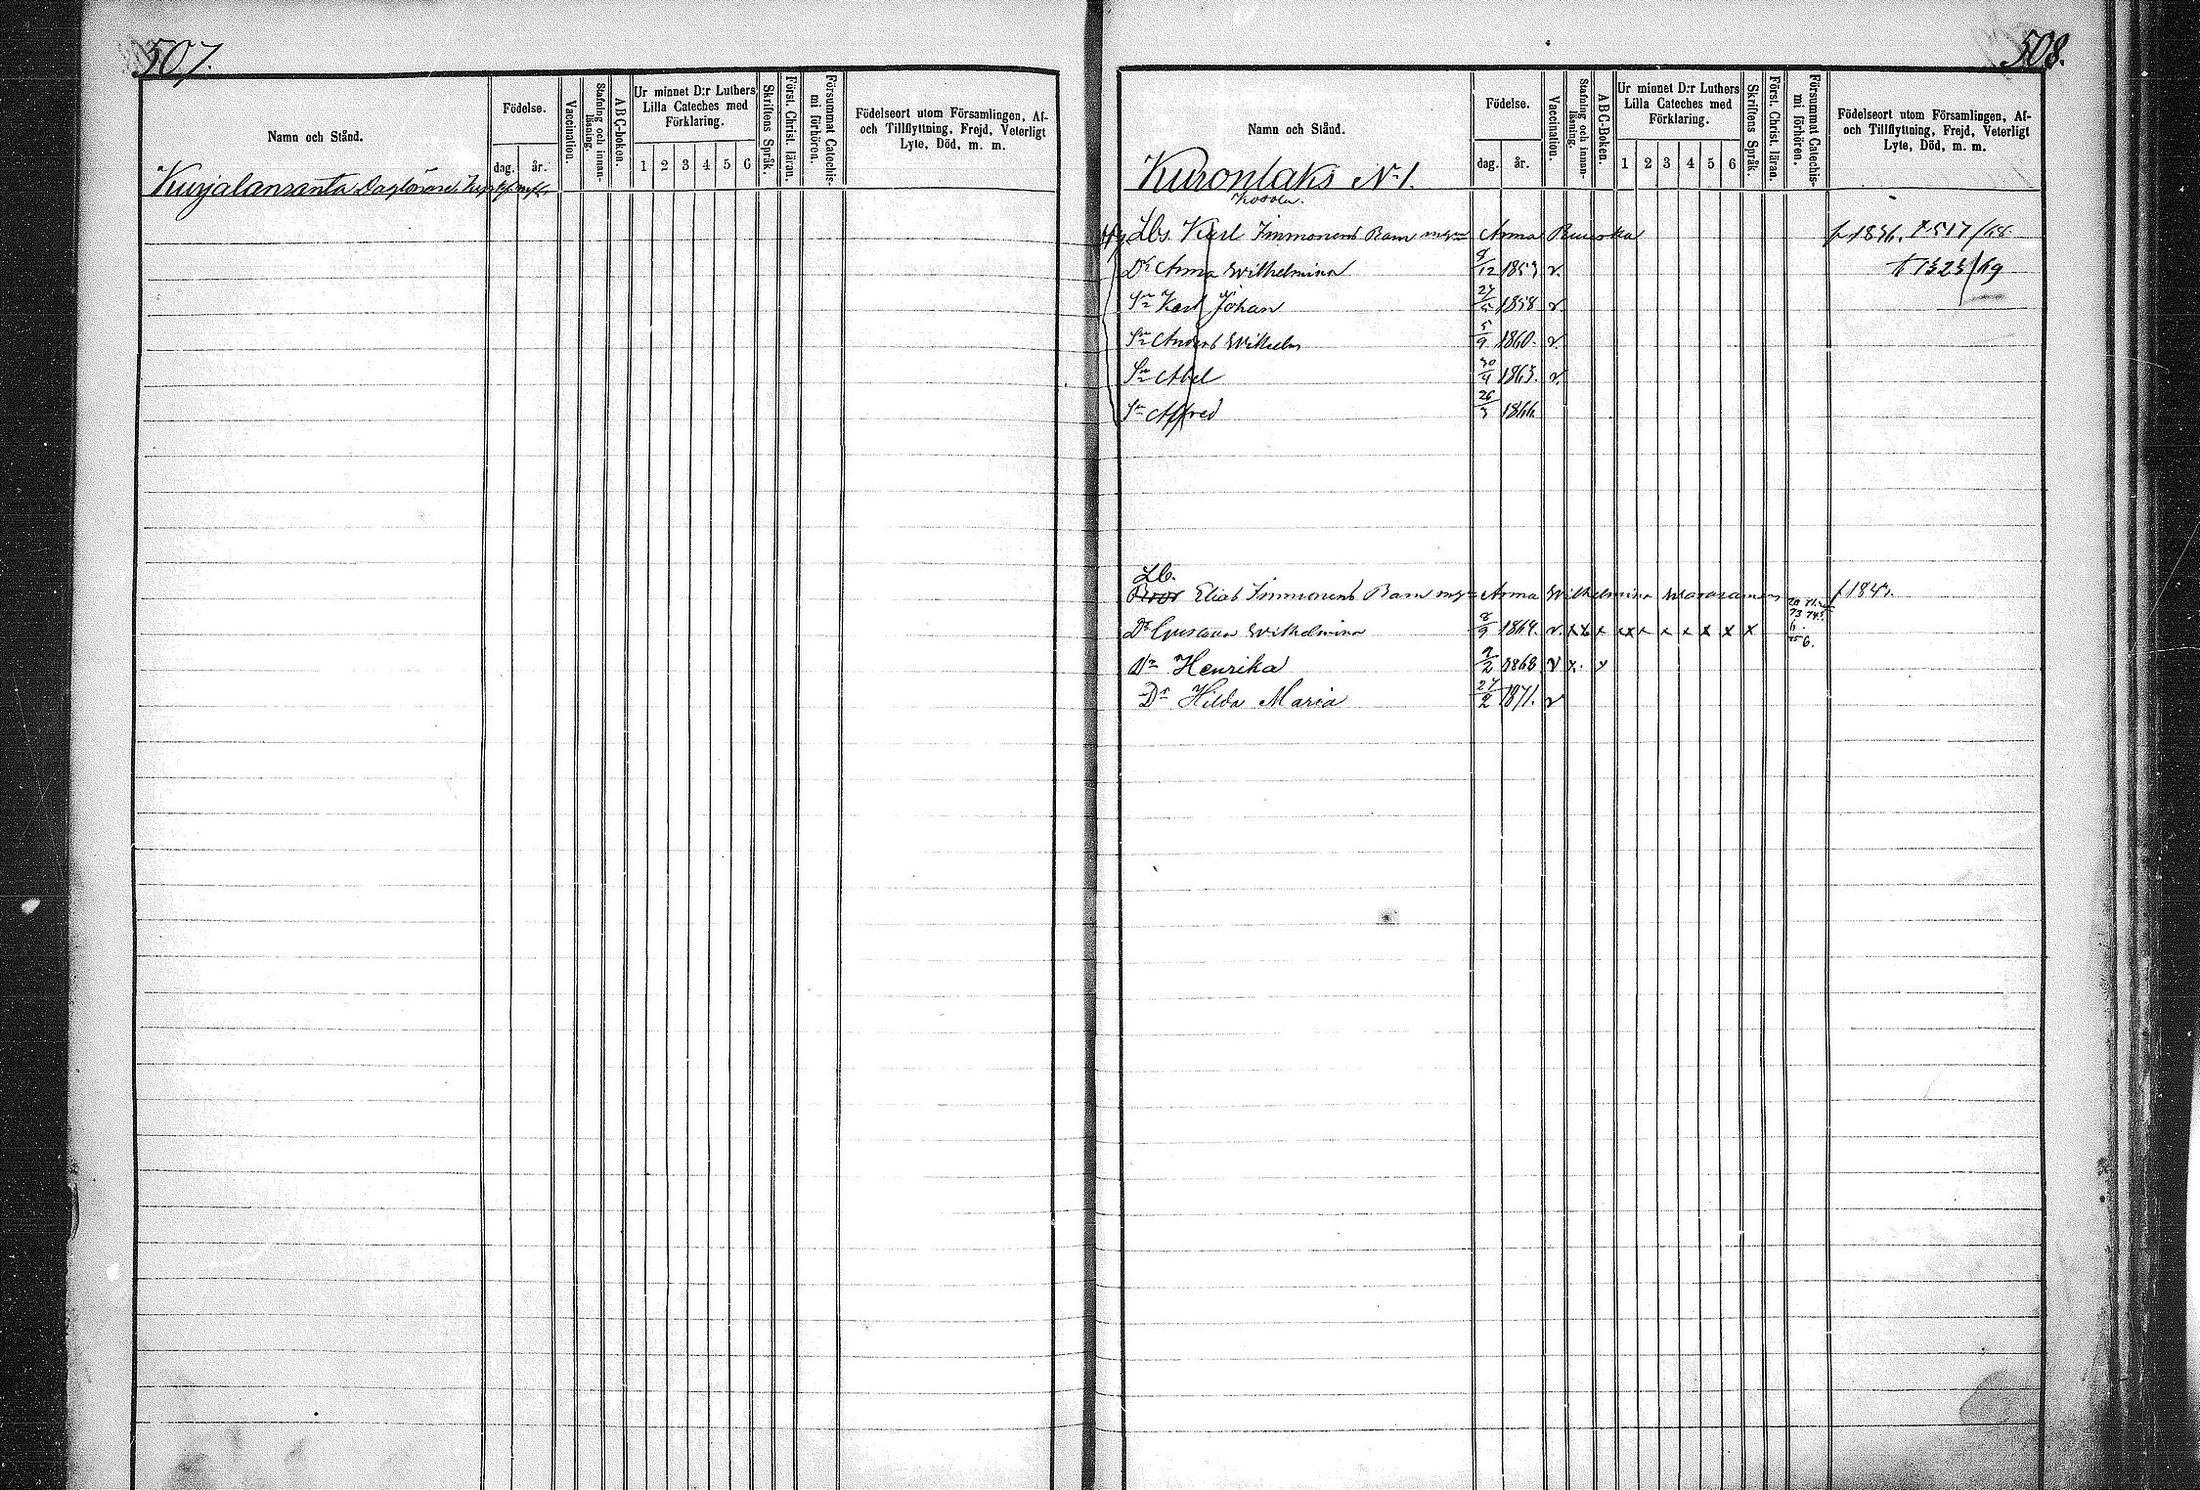 507.
Namn och Stånd.
Födelse.
dag.
år.
Vaccination.
Stafning och innan-
läsning.
ABC-boken.
Ur minnet D:r Luthers
Lilla Cateches med
Förklaring.
1 2 3 4 5 6
Skriftens Språk.
Först. Christ. läran.
Försummat Catechis-
mi förhören.
Födelseort utom Församlingen, Af-
och Tillflyttning, Frejd, Veterligt
Lyte, Död, m. m.
Kurjalanranta
508.
Namn och Stånd.
Födelse.
dag.
år.
Vaccination.
Stafning och innan-
läsning.
ABC-Boken.
Ur minnet D:r Luthers
Lilla Cateches med
Förklaring.
1 2 3 4 5 6
Skriftens Språk.
Först. Christ. läran.
Försummat Catechis-
mi förhören.
Födelseort utom Församlingen, Af-
och Tillflyttning, Frejd, Veterligt
Lyte, Död, m. m.
Kuronlaks No 1.
Lbs. Karl Immonens Barn med Anna p 1836. + 517/68
Dr Anna Wilhelmina 9/12 1853 v. + 1323/69
Sn Karl Johan 27/5 1858 v.
Sn Anders Wilhelm 5/9 1860. v.
Sn Abel 30/4 1863. v.
Sn Alfred 26/3 1866
Lb.
Elias Immonens Barn med Anna Wilhelmina p 1843.
Dr Gustava Wilhelmina 8/9 1864. v. x x x x x x x x x x x
Dr Henrika 9/2 1868 v x. x
Dr Hilda Maria 27/2 1871. v